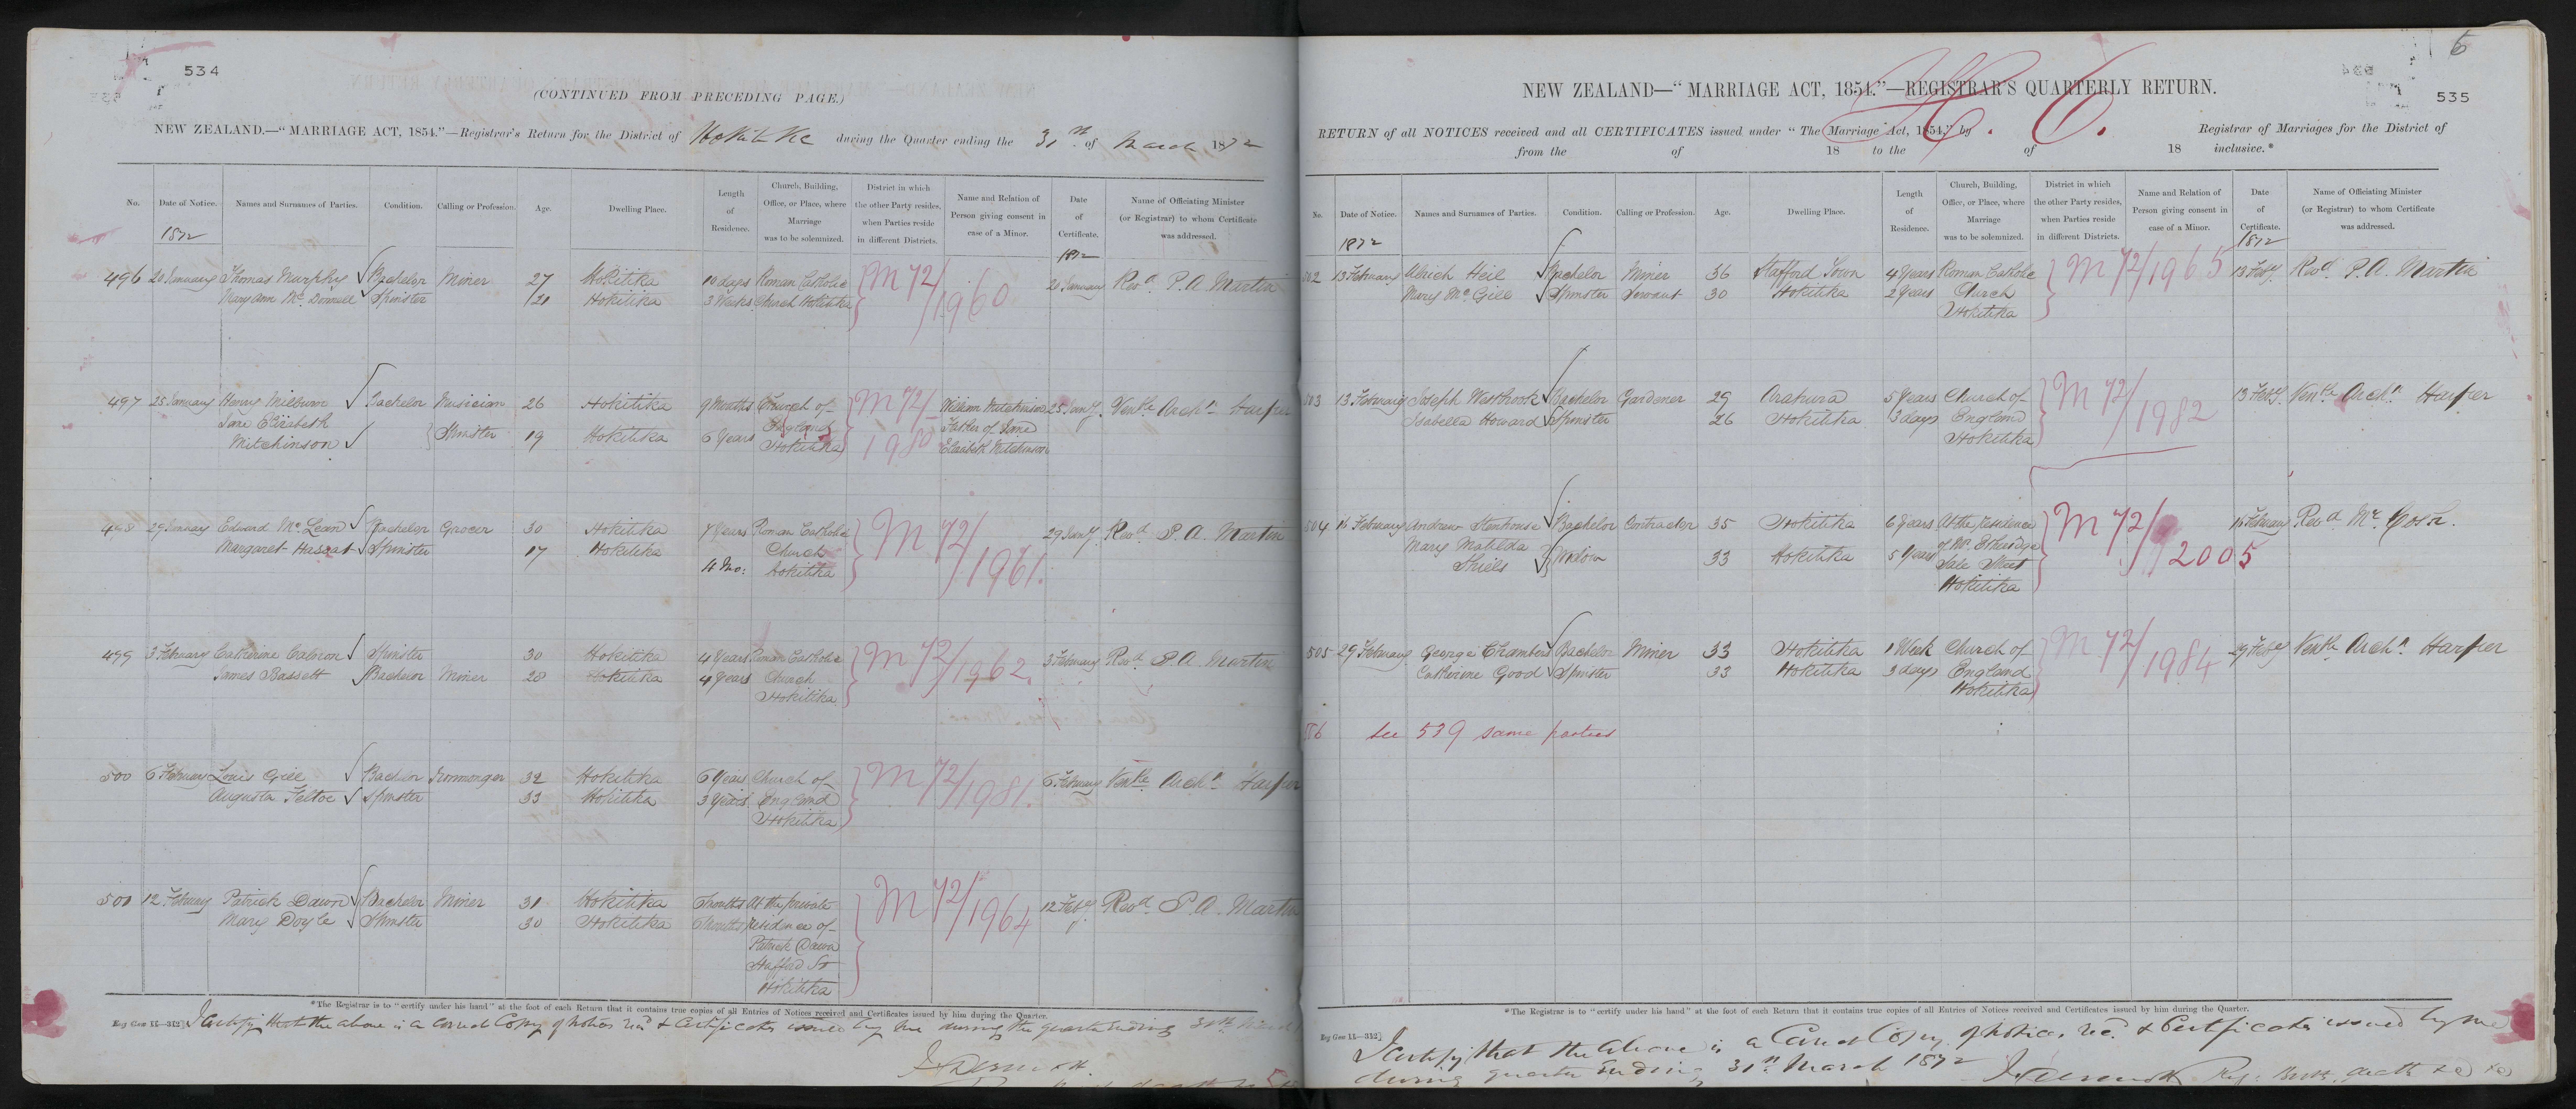 534
(CONTINUED FROM PRECEDING PAGE.)
NEW ZEALAND.—"MARRIAGE ACT, 1854."—Registrar's Return for the District of Hokitika during the Quarter ending the 31st of March 1872
No. Date of Notice. Names and Surnames of Parties. Condition. Calling or Profession. Age. Dwelling Place. Length of Residence. Church, Building, Office, or Place, where Marriage was to be solemnized. District in which the other Party resides, when Parties reside in different Districts. Name and Relation of Person giving consent in case of a Minor. Date of Certificate. Name of Officiating Minister (or Registrar) to whom Certificate was addressed.
1872 1872
496 20 January Thomas Murphy Bachelor Miner 27 Hokitika 10 days Roman Catholic M 72/1960 20 January Revd. P. A. Martin
Mary Ann Mc Donnell Spinster 21 Hokitika 3 Weeks Church Hokitika
497 25 January Henry Milburn Bachelor Musician 26 Hokitika 9 Months Church of M 72/1980 William Mitchinson 25 Jany. Venble Archn Harper
Jane Elizabeth England Father of Jane
Mitchinson Spinster 19 Hokitika 6 Years Hokitika Elizabeth Mitchinson
498 29 January Edward Mc Lean Bachelor Grocer 30 Hokitika 7 Years Roman Catholic M 72/1961. 29 Jany. Revd. P. A. Martin
Margaret Spinster 17 Hokitika Church
4 Mo: Hokitika
499 3 February Catherine Spinster 30 Hokitika 4 Years Roman Catholic M 72/1962. 3 February Revd. P. A. Martin
James Bassett Bachelor Miner 28 Hokitika 4 Years Church
Hokitika
500 6 February Louis Gill Bachelor Ironmonger 32 Hokitika 6 Years Church of M 72/1981. 6 February Venble Archn Harper
Augusta Feltoe Spinster 33 Hokitika 3 Years England
Hokitika
501 12 February Patrick Dawn Bachelor Miner 31 Hokitika Months At the private M 72/1964 12 Feby. Revd. P. A. Martin
Mary Doyle Spinster 30 Hokitika 6 Months residence of
Patrick Dawn
Stafford St
Hokitika
*The Registrar is to "certify under his hand" at the foot of each Return that it contains true copies of all Entries of Notices received and Certificates issued by him during the Quarter.
I certify that the above is a Correct Copy of Notices recd & Certificates issued by me during the quarter ending 31st March
5
535
NEW ZEALAND—"MARRIAGE ACT, 1854."—REGISTRAR'S QUARTERLY RETURN.
RETURN of all NOTICES received and all CERTIFICATES issued under "The Marriage Act, 1854," by Registrar of Marriages for the District of
from the of 18 to the of 18 inclusive.*
No. Date of Notice. Names and Surnames of Parties. Condition. Calling or Profession. Age. Dwelling Place. Length of Residence. Church, Building, Office, or Place, where Marriage was to be solemnized. District in which the other Party resides, when Parties reside in different Districts. Name and Relation of Person giving consent in case of a Minor. Date of Certificate. Name of Officiating Minister (or Registrar) to whom Certificate was addressed.
1872 1872
502 13 February Ulrich Heil Bachelor Miner 36 Stafford Town 4 Years Roman Catholic M 72/1965 13 Feby. Revd. P. A. Martin
Mary Mc Gill Spinster Servant 30 Hokitika 2 Years Church
Hokitika
503 13 February Joseph Westbrook Bachelor Gardener 29 Arahura 5 Years Church of M 72/1982 13 Feby. Venble Archn Harper
Isabella Howard Spinster 26 Hokitika 3 days England
Hokitika
504 15 February Andrew Stenhouse Bachelor Contractor 35 Hokitika 6 Years At the residence M 72/2005 15 February Revd. Mr. Gorn.
Mary Matilda Widow 33 Hokitika 5 Years of Mr. Etheridge
Shiels Sale Street
Hokitika
505 29 February George Chambers Bachelor Miner 33 Hokitika 1 Week Church of M 72/1984 29 Feby Venble Archn Harper
Catherine Good Spinster 33 Hokitika 3 days England
Hokitika
see 539 same parties
*The Registrar is to "certify under his hand" at the foot of each Return that it contains true copies of all Entries of Notices received and Certificates issued by him during the Quarter.
I certify that the above is a Correct Copy of Notices recd & Certificates issued by me
during quarter ending 31st March 1872